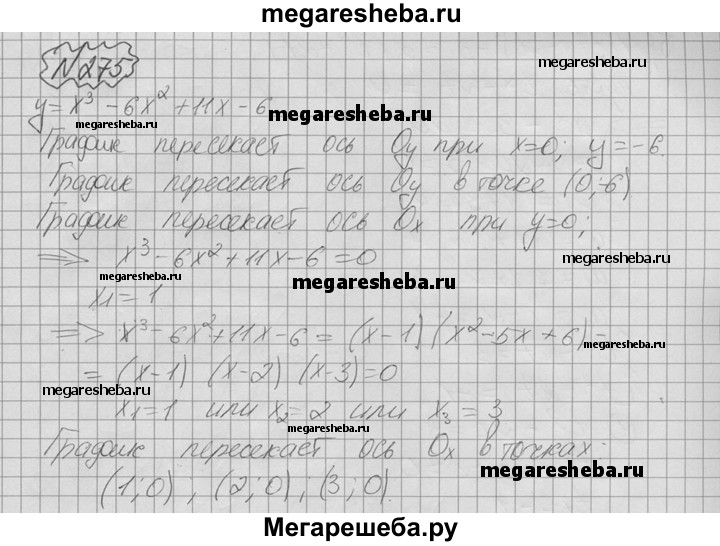 megaresheba.ru
N275 megaresheba.ru
y = x³ - 6x² + 11x - 6 megaresheba.ru
megaresheba.ru
График пересекает ось Oy при x=0; y=-6.
График пересекает ось Oy в точке (0;-6)
График пересекает ось Ox при y=0;
=> x³ - 6x² + 11x - 6 = 0 megaresheba.ru
megaresheba.ru megaresheba.ru
x₁ = 1
=> x³ - 6x² + 11x - 6 = (x-1)(x² - 5x + 6) =
megaresheba.ru
= (x-1)(x-2)(x-3)=0
megaresheba.ru
x₁=1 или x₂=2 или x₃=3
megaresheba.ru
График пересекает ось Ox в точках:
megaresheba.ru
(1;0); (2;0); (3;0).
Мегарешеба.ру